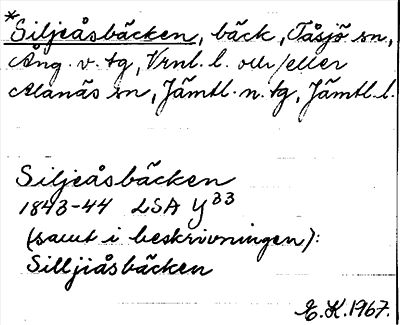 *Siljeåsbäcken, bäck, Tåsjö sn,
Ång. v. tg, Vrnl. l. och/eller
Alanäs sn, Jämtl. n. tg, Jämtl. l.
Siljeåsbäcken
1843-44 LSA Y33
(samt i beskrivningen):
Silljiåsbäcken
E.K. 1967.